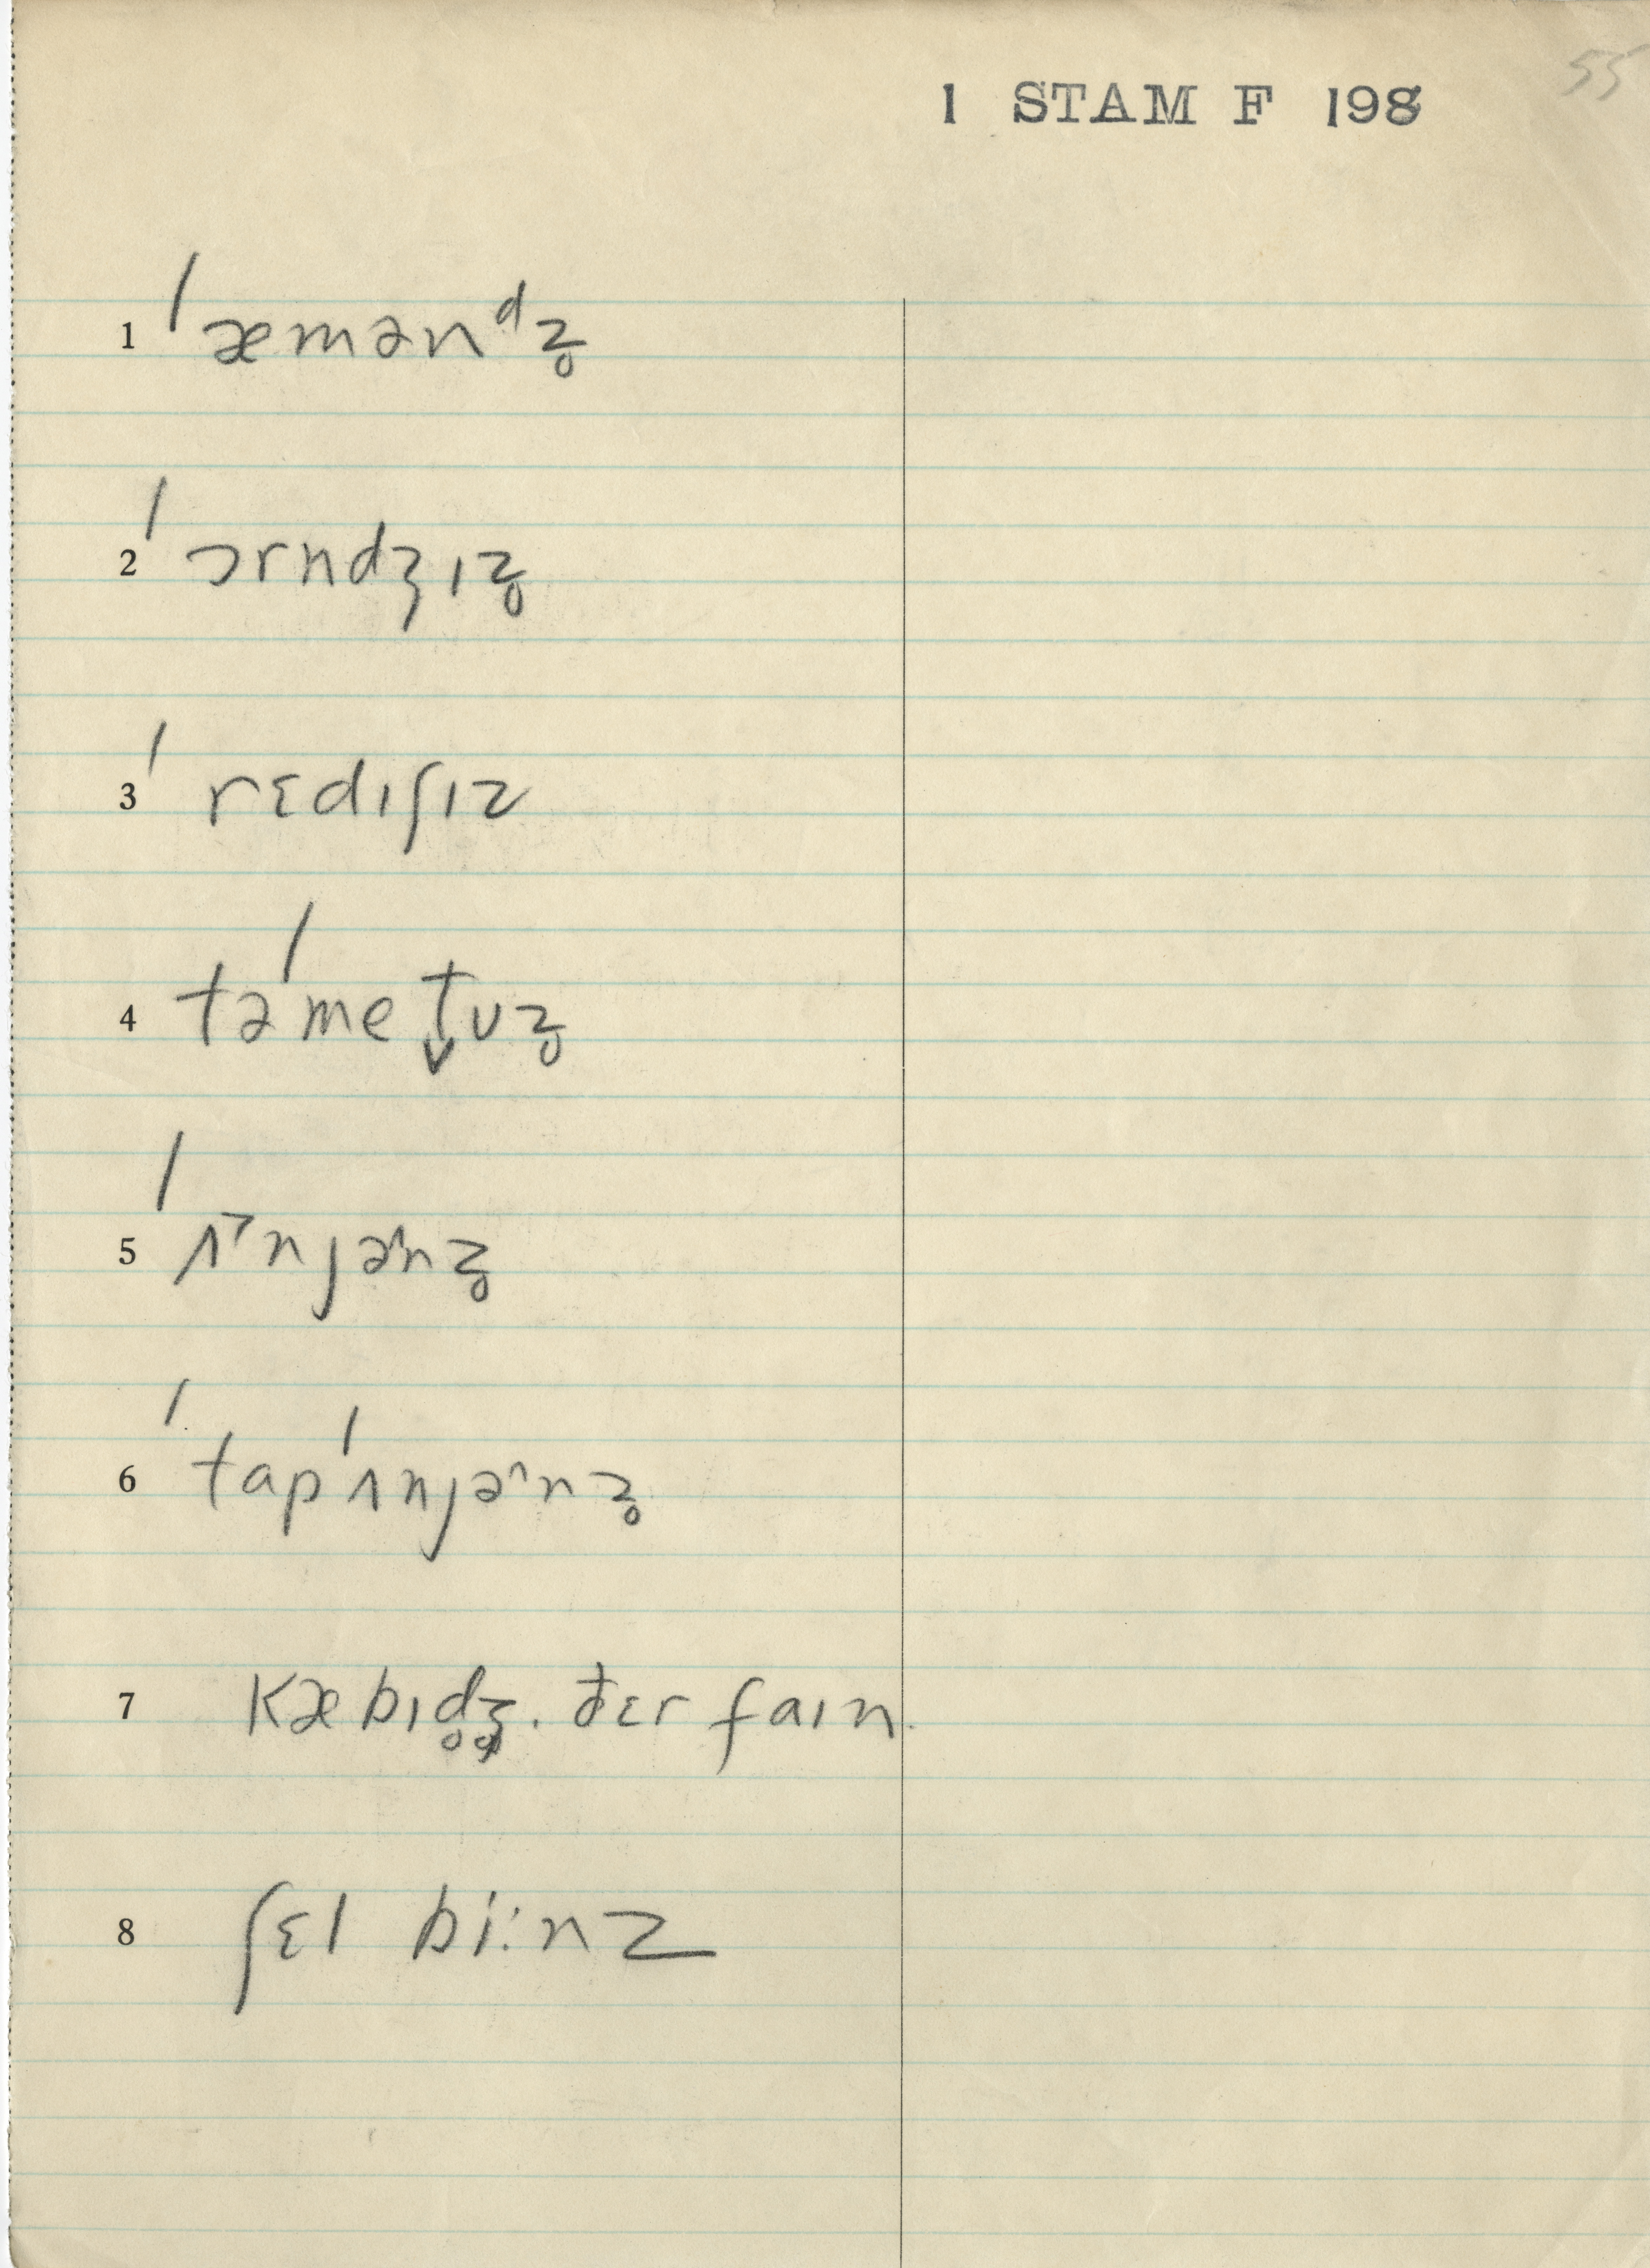 55
1 STAM F 198
1 ˈæmənᵈz̥
2 ˈɔrndʒɪz̥
3 ˈrɛdɪʃɪz
4 təˈmet̬ʊz̥
5 ˈʌ˃njə^nz̥
6 ˈtapˈʌnjə^nz̥
7 kæbɪd̥ʒ̥. ðɛr faɪn.
8 ʃɛl bi:nz